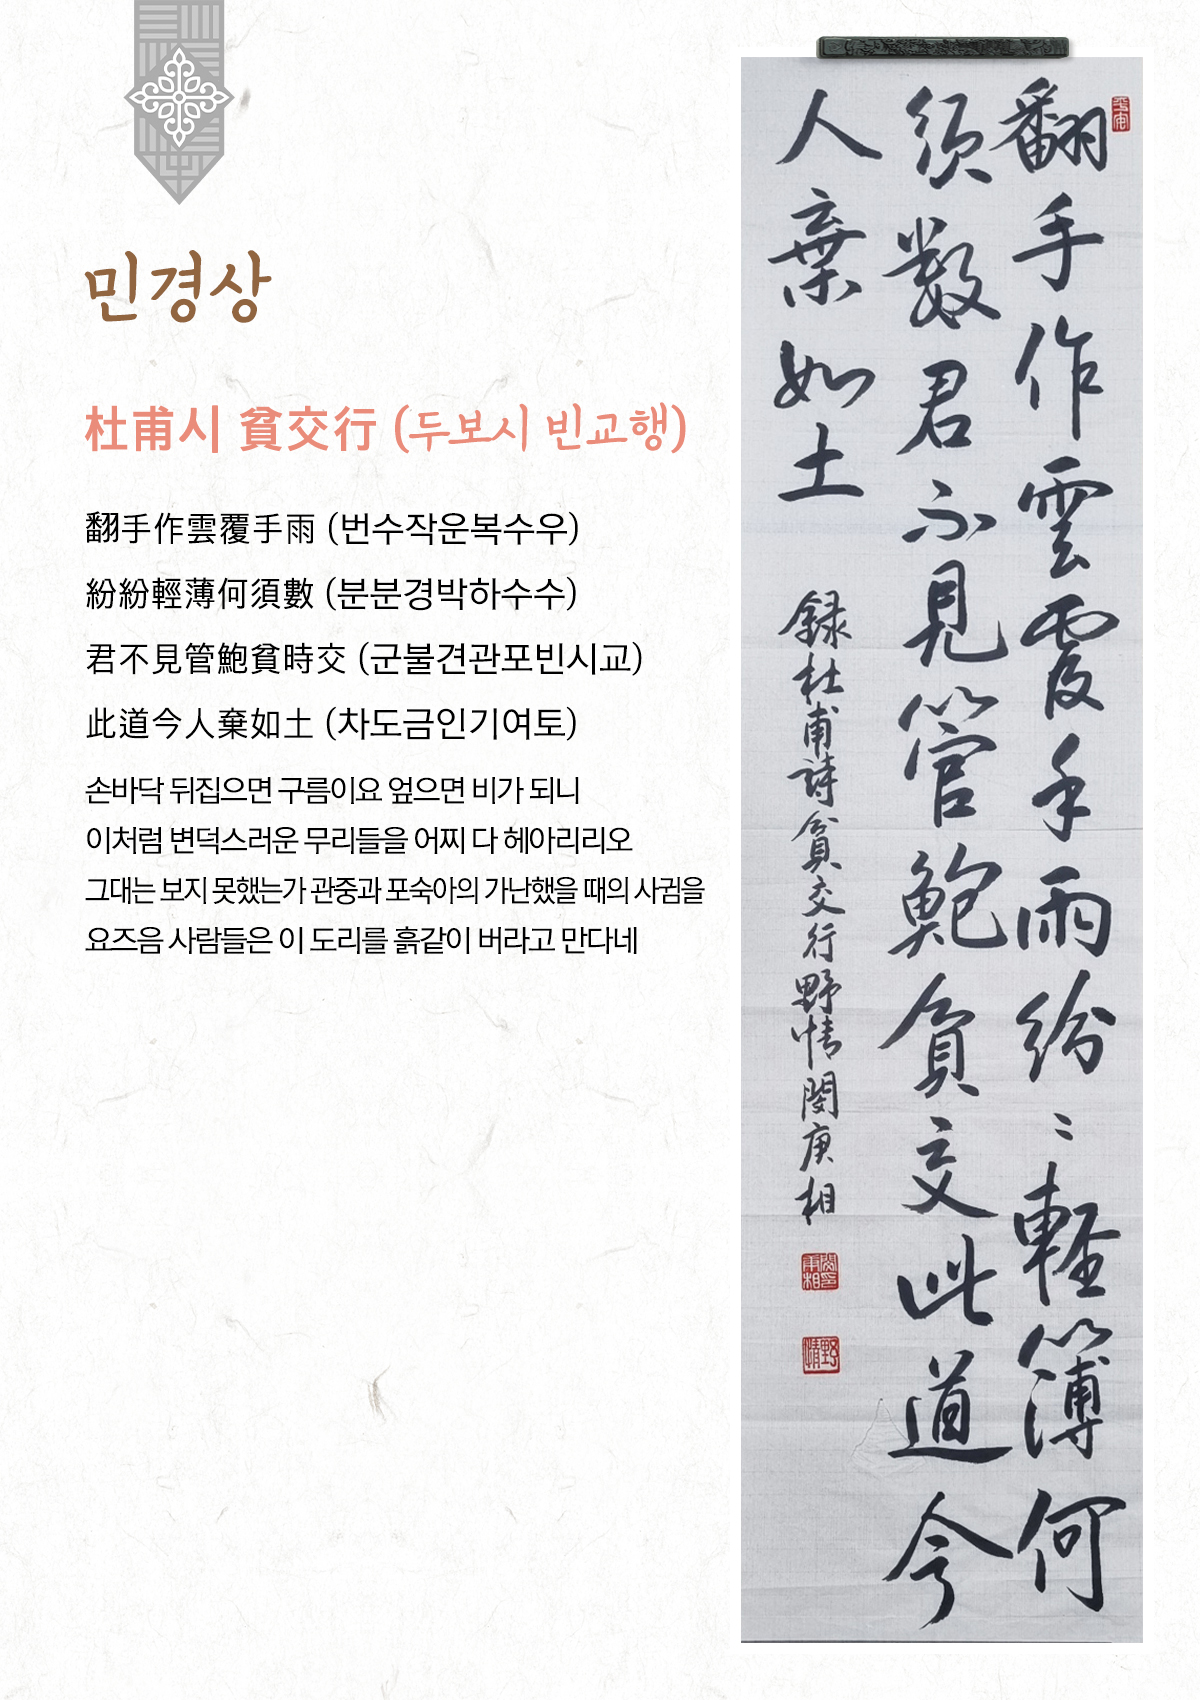 민경상
杜甫시 貧交行 (두보시 빈교행)
翻手作雲覆手雨 (번수작운복수우)
紛紛輕薄何須數 (분분경박하수수)
君不見管鮑貧時交 (군불견관포빈시교)
此道今人棄如土 (차도금인기여토)
손바닥 뒤집으면 구름이요 엎으면 비가 되니
이처럼 변덕스러운 무리들을 어찌 다 헤아리리오
그대는 보지 못했는가 관중과 포숙아의 가난했을 때의 사귐을
요즈음 사람들은 이 도리를 흙같이 버라고 만다네
翻手作雲覆手雨紛〻軽薄何
須数君不見管鮑貧交此道今
人棄如土
録杜甫詩貧交行野情閔庚相